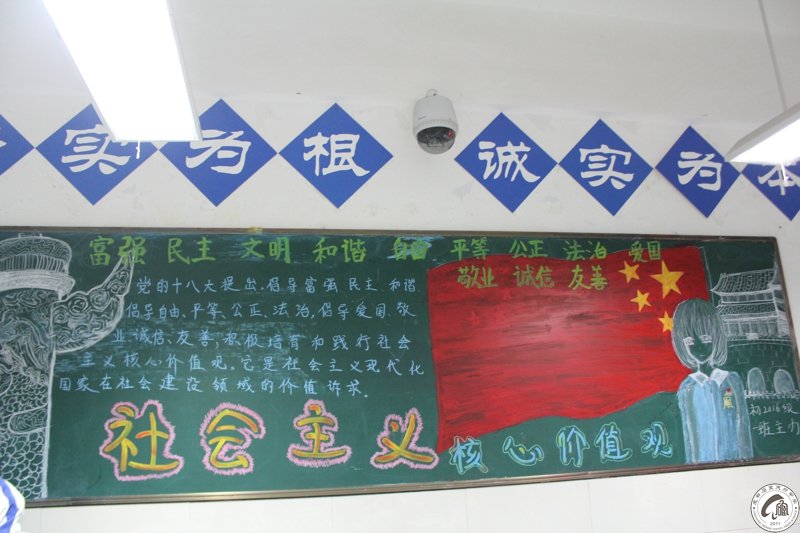 实为根 诚实为本
富强 民主 文明 和谐 自由 平等 公正 法治 爱国
敬业 诚信 友善
党的十八大提出,倡导富强民主 和谐
倡导自由、平等、公正、法治,倡导爱国 敬
业 诚信、友善,积极培育和践行社会
主义核心价值观。它是社会主义现代化
国家在社会建设领域的价值诉求。
社会主义核心价值观
初2016级
一班主办
2011